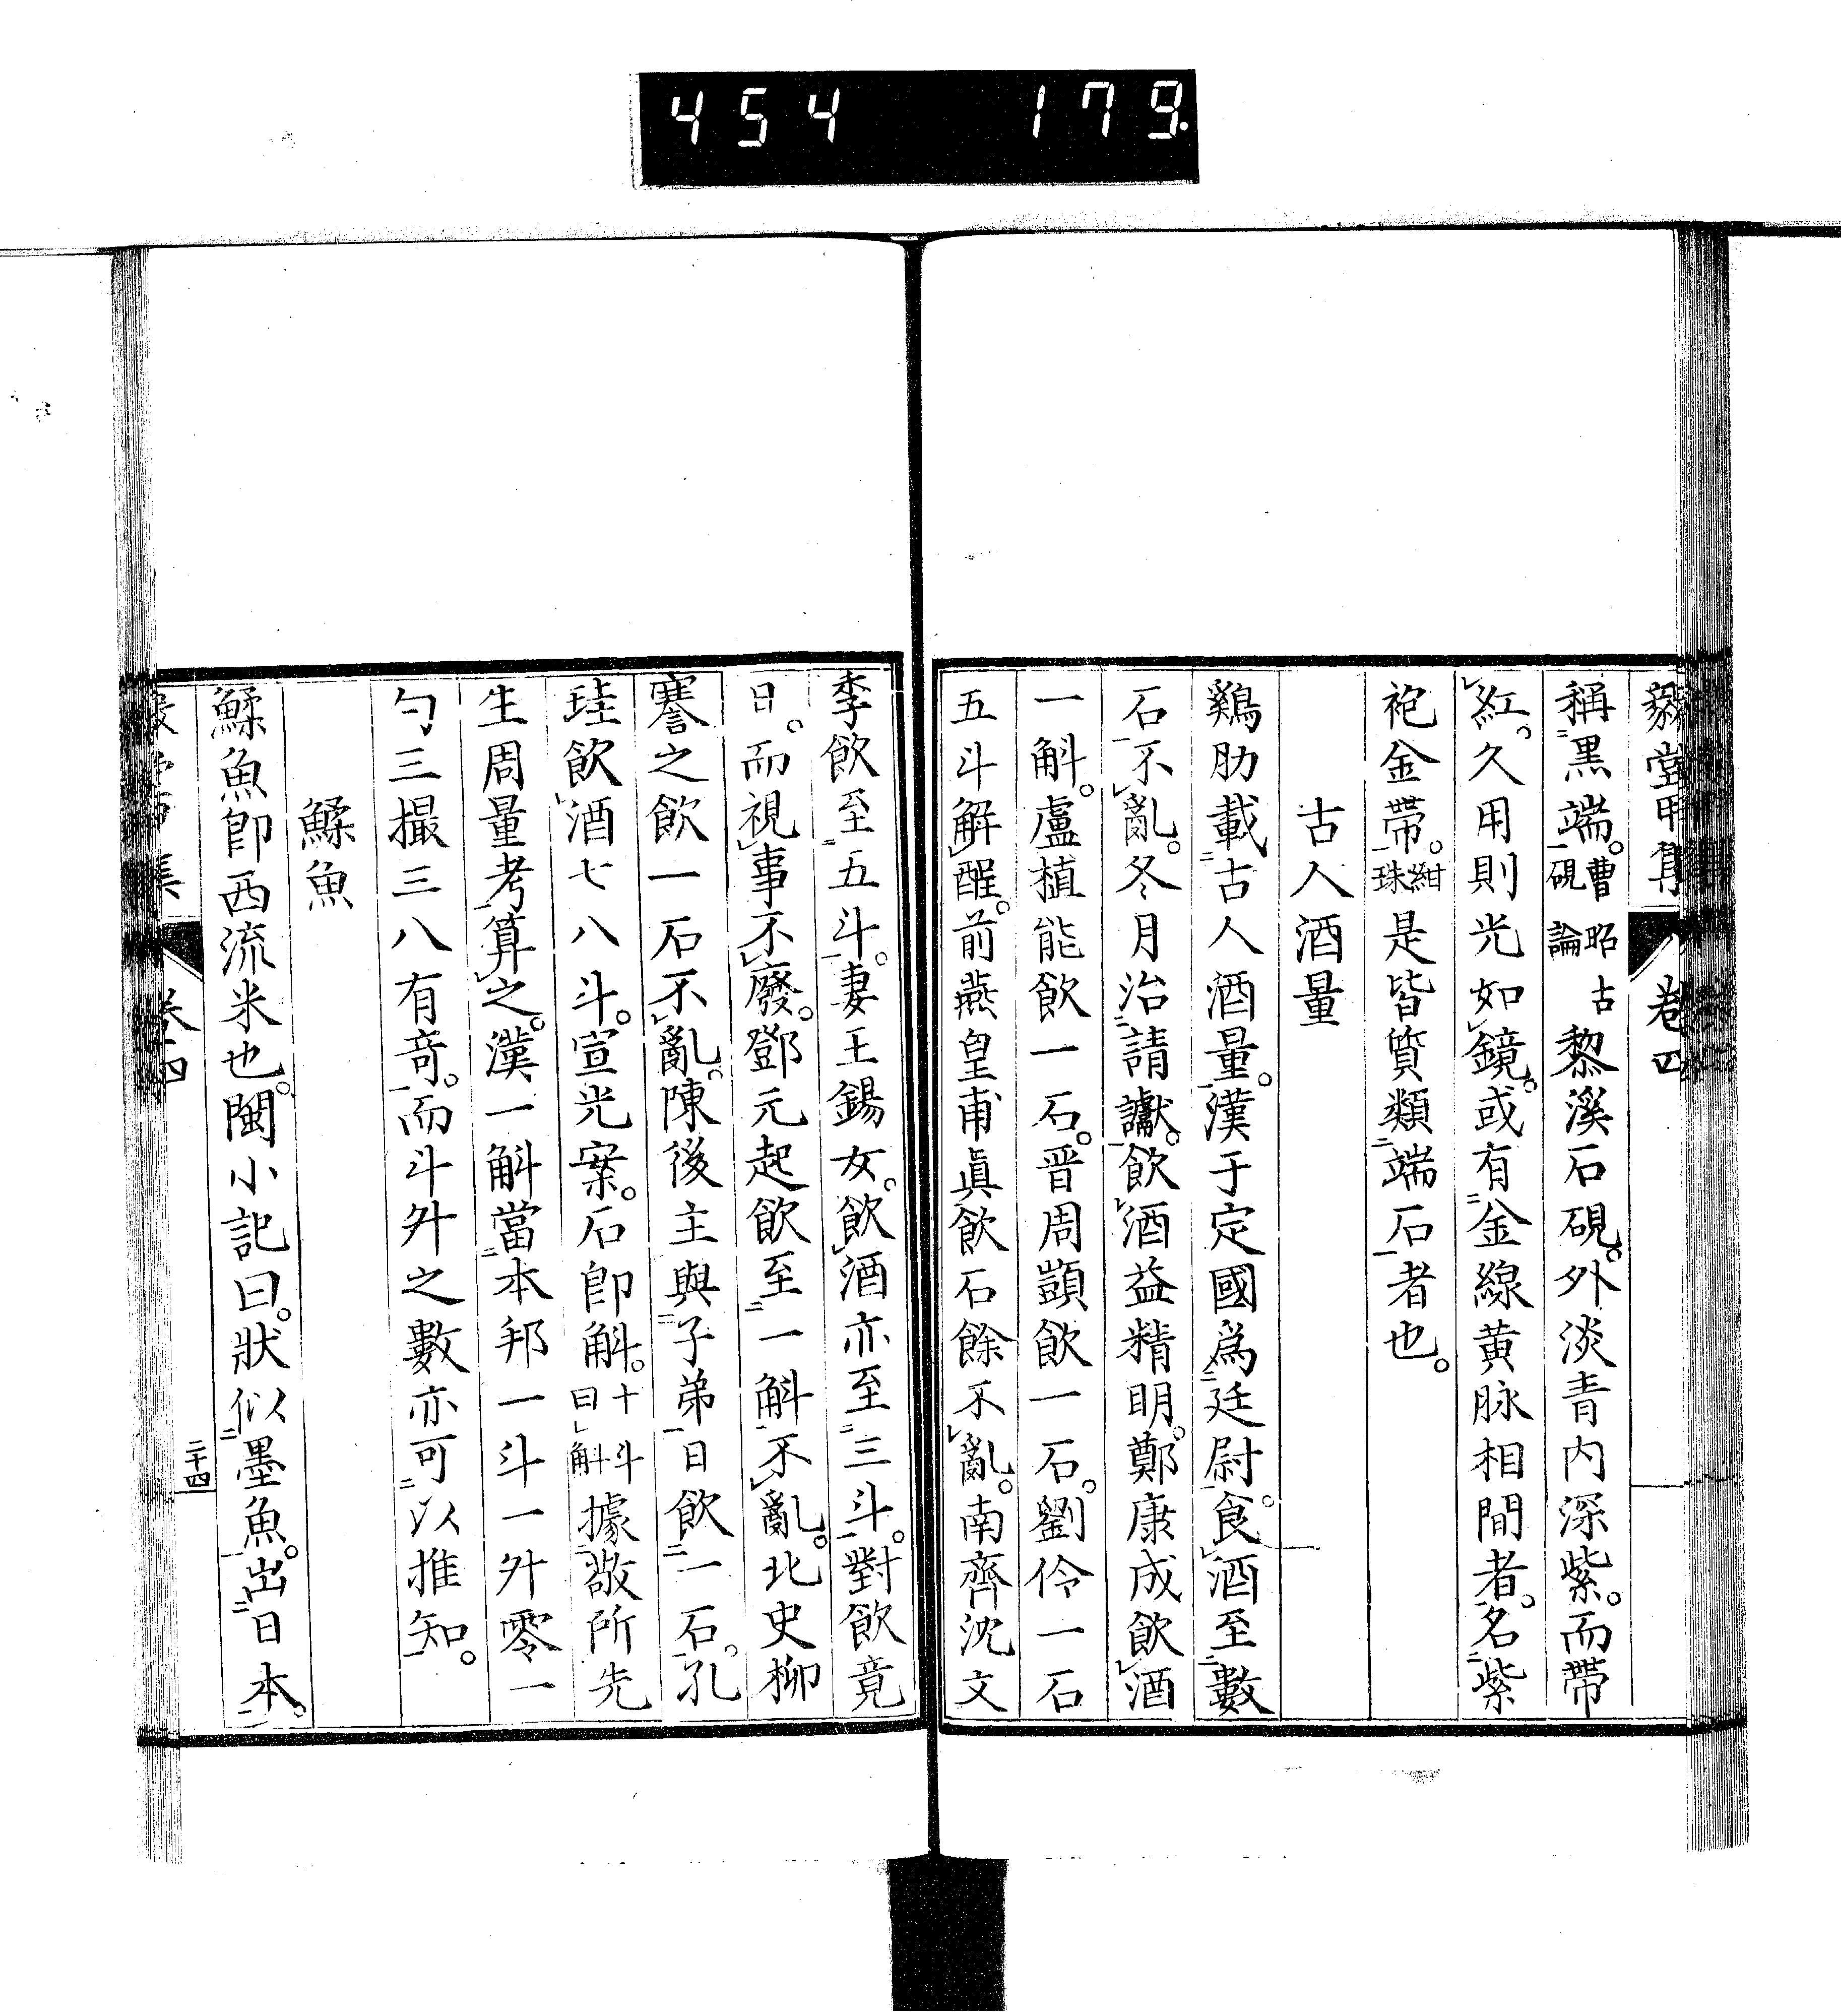 454 179.
稱黑端。曹昭古硯論黎溪石硯。外淡青内深紫。而帶
紅。久用則光如鏡。或有金線黄脉相間者。名紫
袍金帶。紺珠是皆質類端石者也。
古人酒量
鷄肋載古人酒量。漢于定國爲廷尉。食酒至數
石不亂。冬月治請讞。飲酒益精明。鄭康成飲酒
一斛。盧植能飲一石。晉周顗飲一石。劉伶一石
五斗解酲。前燕皇甫眞飲石餘不亂。南齊沈文
季飲至五斗。妻王錫女。飲酒亦至三斗。對飲竟
日。而視事不廢。鄧元起飲至一斛不亂。北史柳
謇之飲一石不亂。陳後主與子弟日飲一石。孔
珪飲酒七八斗。宣光案。石即斛。十斗曰斛據敬所先
生周量考算之。漢一斛當本邦一斗一升零一
勺三撮三八有奇。而斗升之數亦可以推知。
鰇魚
鰇魚即西流米也。閩小記曰。狀似墨魚。出日本。
卷四
二十四